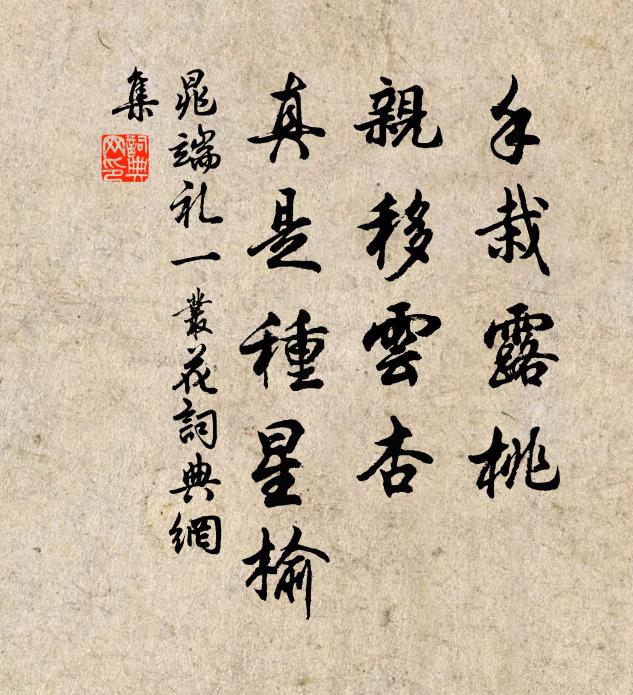 手栽露桃
親移雲杏
真是種星榆
晁端礼一叢花詞典網
集
詞典网印